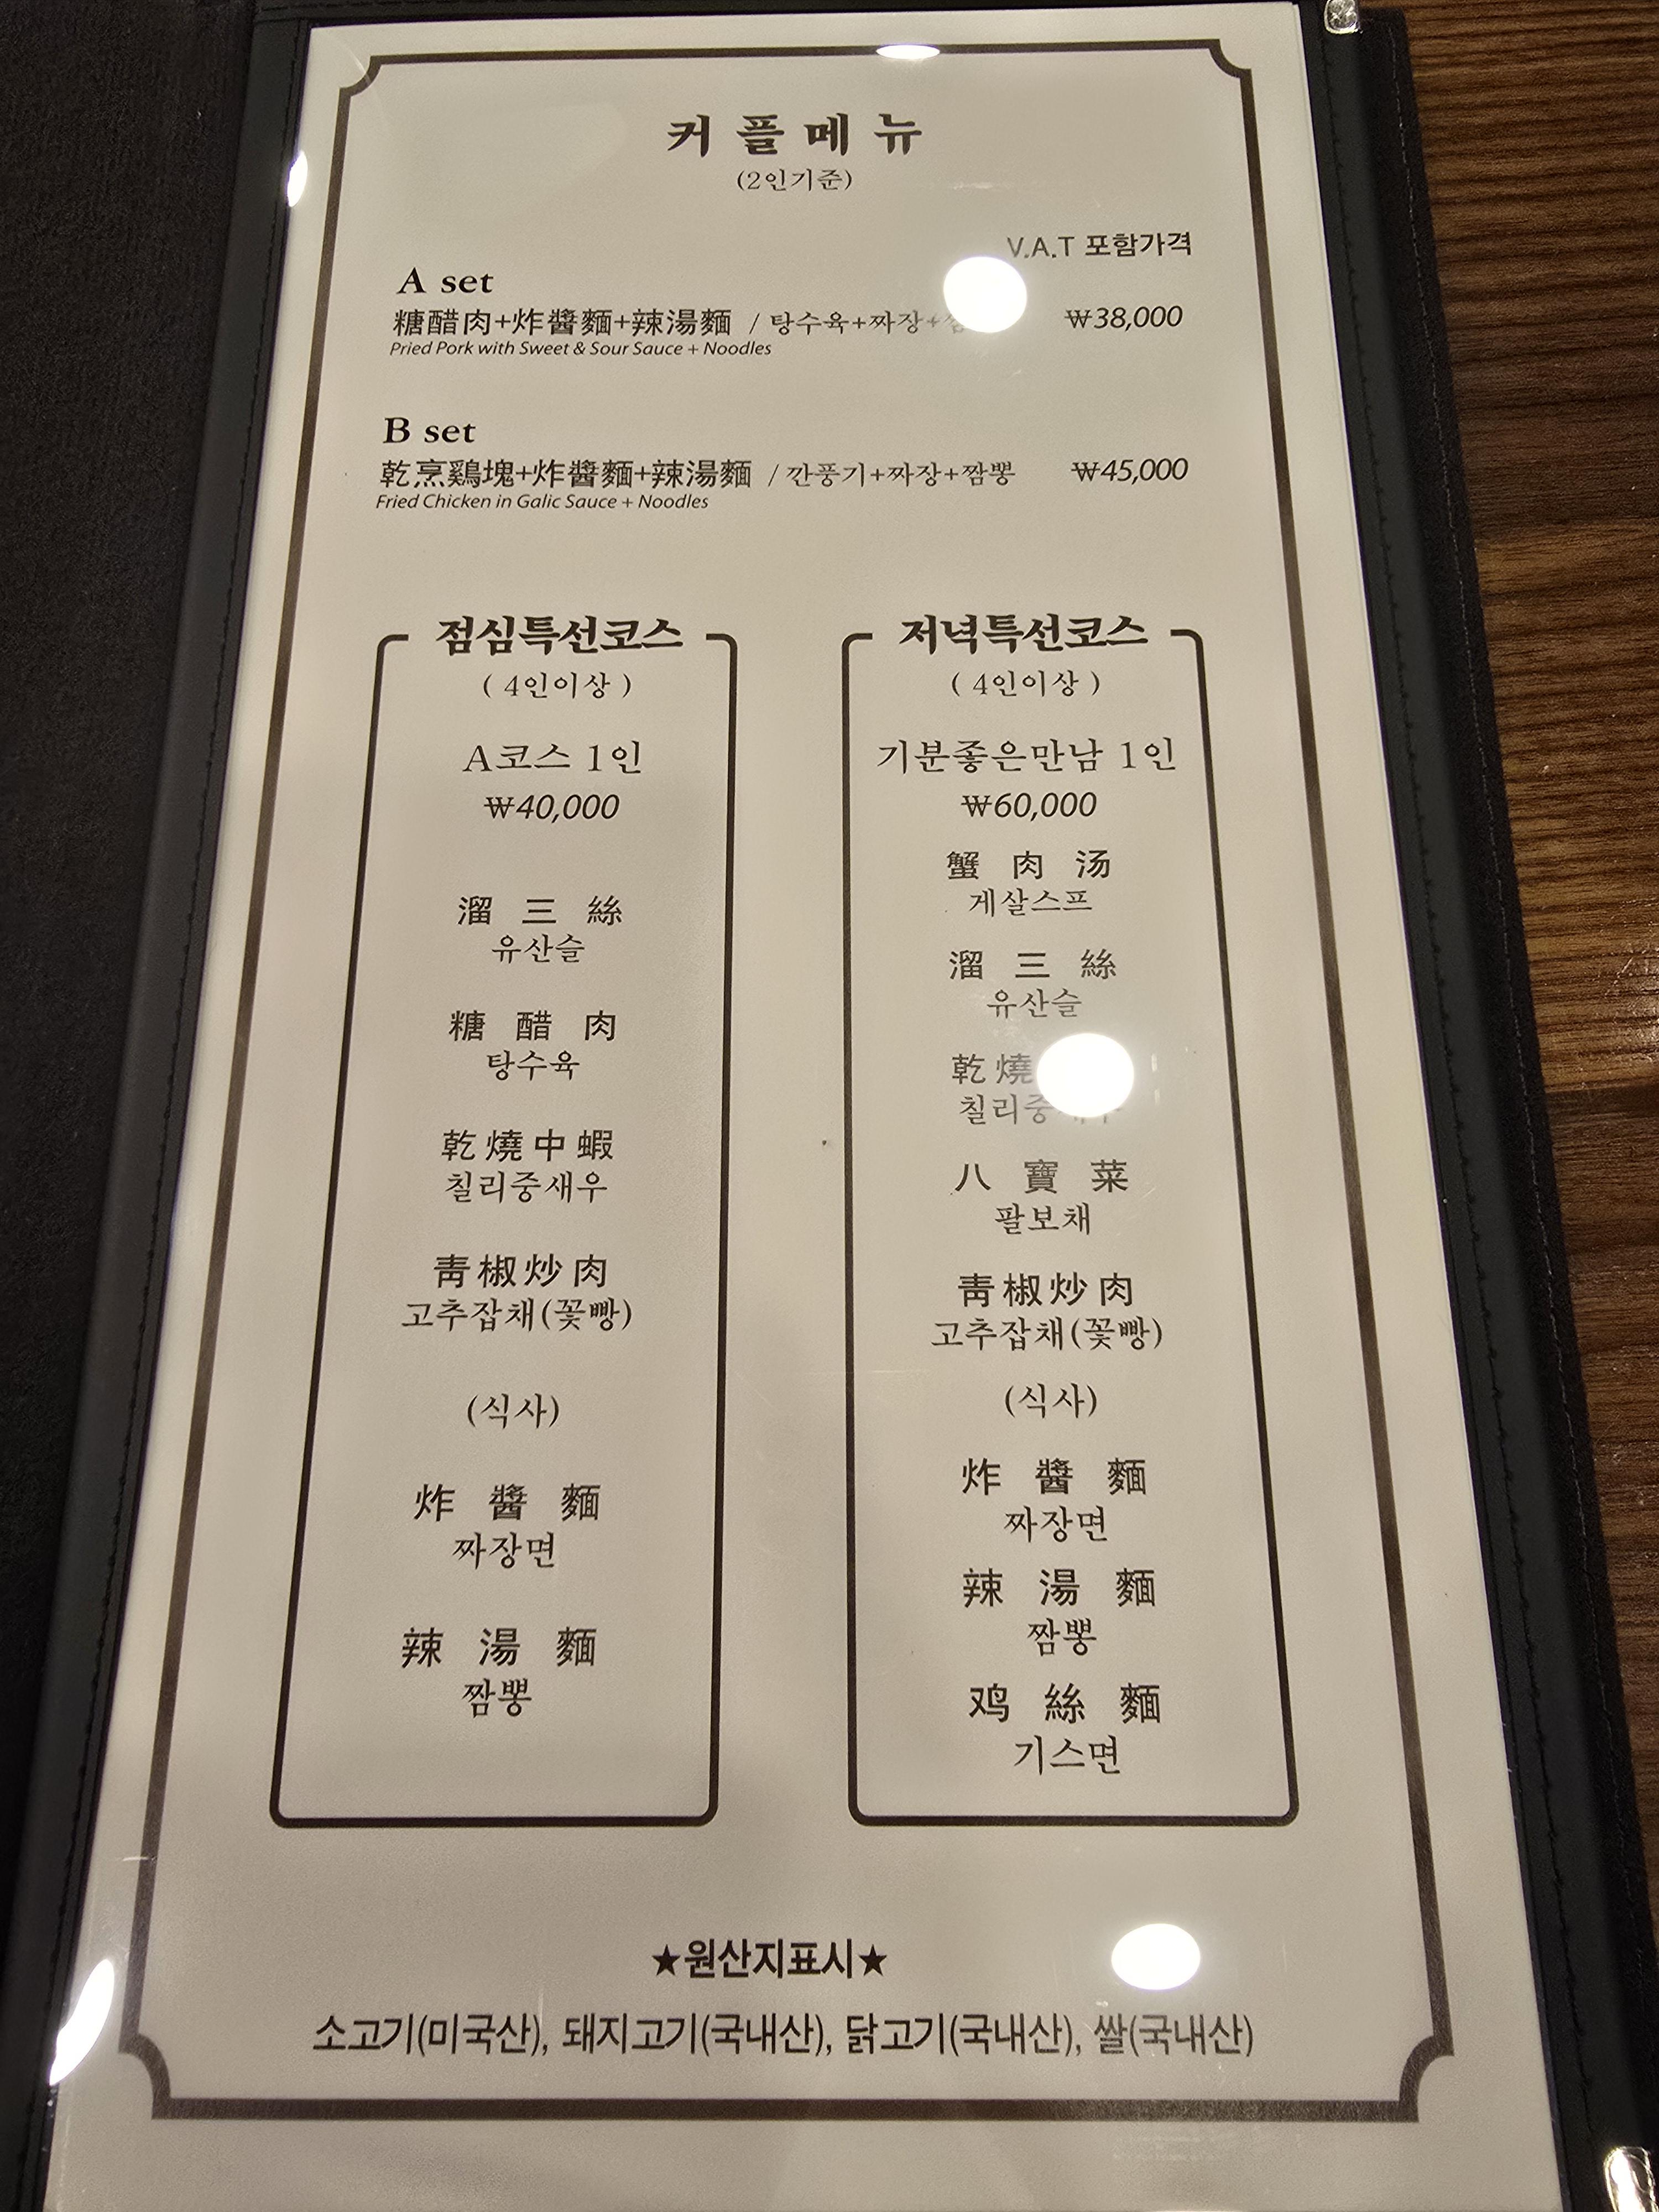 커플메뉴
(2인기준)
V.A.T 포함가격
A set
糖醋肉+炸醬麵+辣湯麵 / 탕수육+짜장+ ₩38,000
Pried Pork with Sweet & Sour Sauce + Noodles
B set
乾烹鷄塊+炸醬麵+辣湯麵 / 깐풍기+짜장+짬뽕 ₩45,000
Fried Chicken in Galic Sauce + Noodles
점심특선코스
(4인이상)
A코스 1인
₩40,000
溜三絲
유산슬
糖醋肉
탕수육
乾燒中蝦
칠리중새우
靑椒炒肉
고추잡채(꽃빵)
(식사)
炸醬麵
짜장면
辣湯麵
짬뽕
저녁특선코스
(4인이상)
기분좋은만남 1인
₩60,000
蟹肉汤
게살스프
溜三絲
유산슬
乾燒
칠리중새우
八寶菜
팔보채
靑椒炒肉
고추잡채(꽃빵)
(식사)
炸醬麵
짜장면
辣湯麵
짬뽕
鸡絲麵
기스면
★원산지표시★
소고기(미국산), 돼지고기(국내산), 닭고기(국내산), 쌀(국내산)